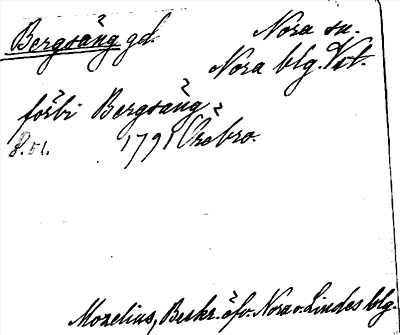 Bergsäng gd.
Nora sn.
Nora blg. Vst.
förbi Bergsäng
8. 51.
1791 Örebro.
Mozelius, Beskr. öfv. Nora o. Lindes blg.